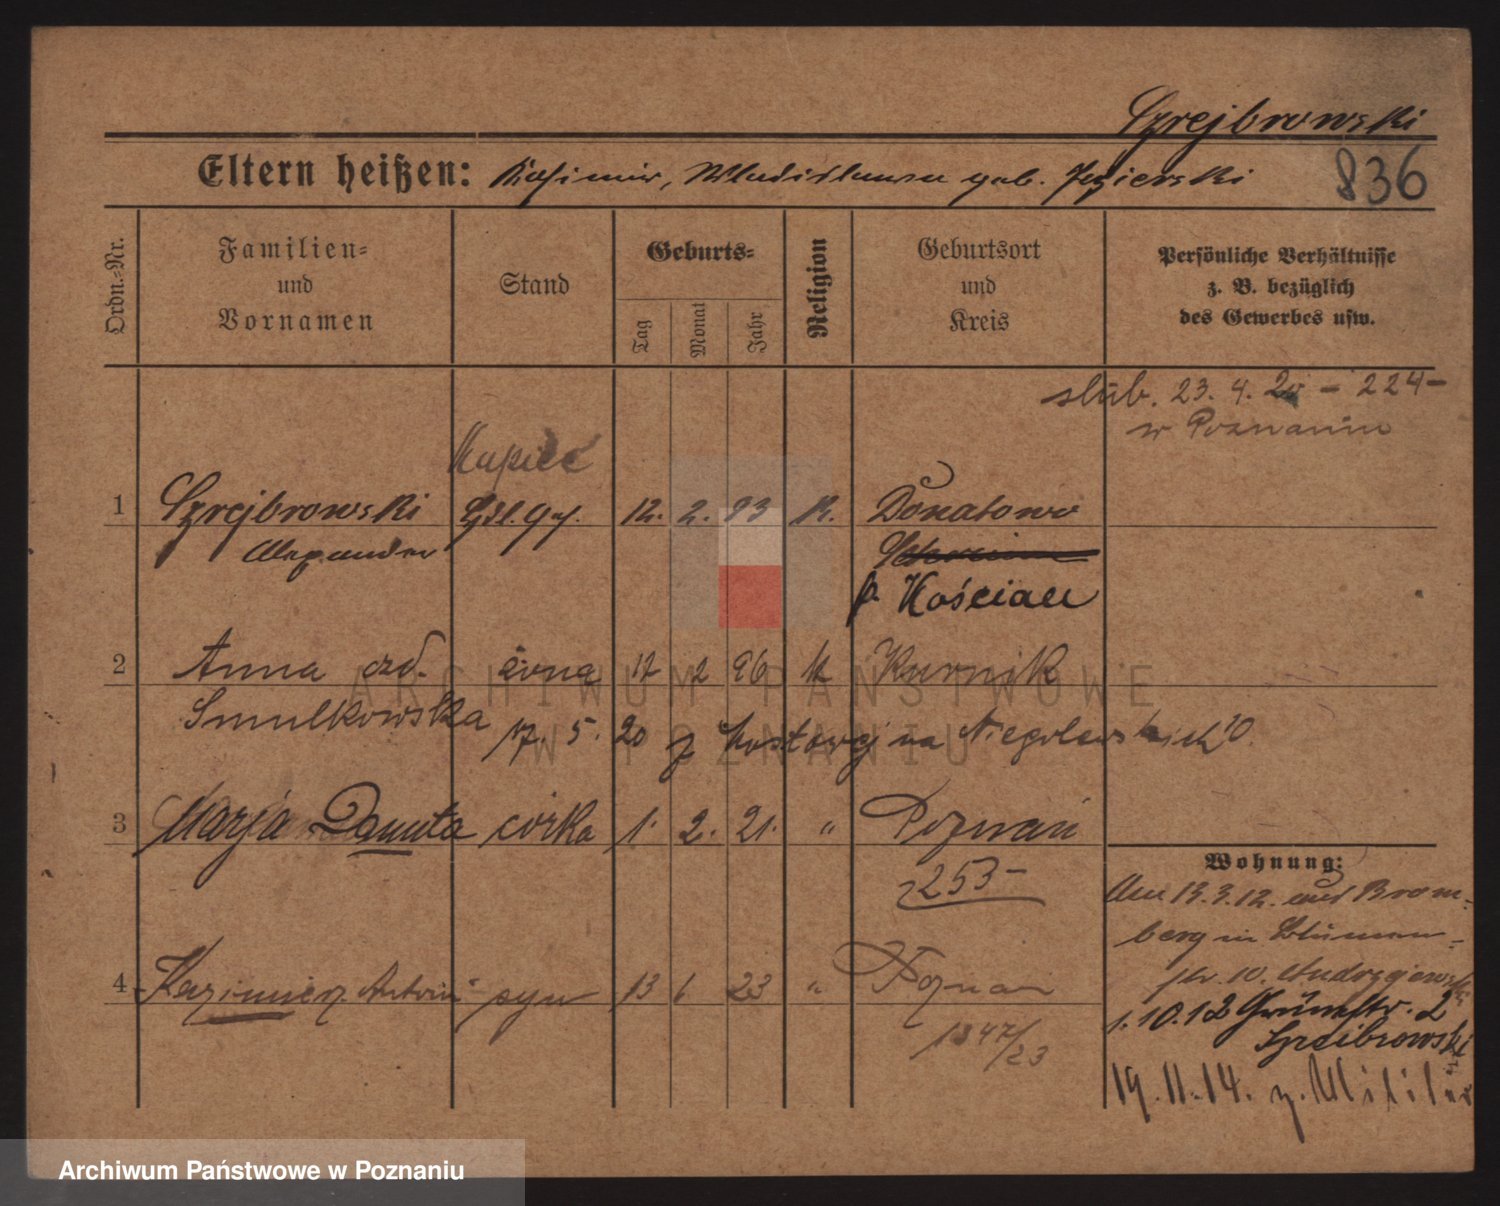 Szrejbrowski
Eltern heißen: Kasimir, Wladislawa geb. Jezierski
836
Ordn.-Nr.
Familien-
und
Vornamen
Stand
Geburts-
Tag
Monat
Jahr
Religion
Geburtsort
und
Kreis
Persönliche Verhältnisse
z. B. bezüglich
des Gewerbes usw.
ślub. 23. 4. 20 – 224 –
w Poznaniu
Kupiec
1 Szrejbrowski Hdl. Geh. 12. 2. 93 K. Donatowo
Alexander
p. Kościan
2 Anna zd. żona 17 2 96 K Kurnik
Smulkowska
17. 5. 20 z Kostrzyj na Niegolewskich 10.
3 Marja Danuta córka 1. 2. 21. " Poznań
253 –
Wohnung:
Am 13.3.12. aus Brom-
berg in Blumen-
str. 10. Andrzejewski
4 Kazimierz Antoni syn 13 6 23 " Poznań
1347/23
1.10.12 Grünstr. 2
Szrejbrowski
19.11.14. z. Militär
ARCHIWUM PAŃSTWOWE
W POZNANIU
Archiwum Państwowe w Poznaniu